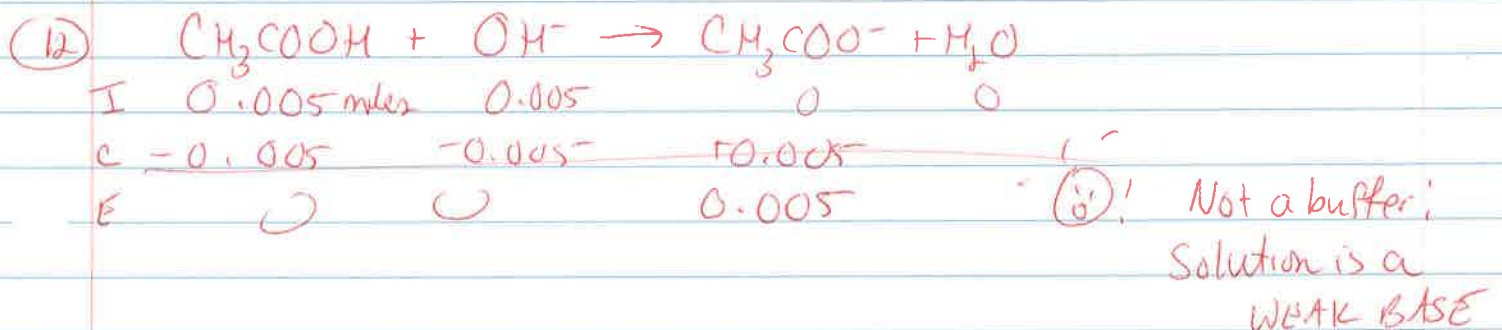 12 CH₃COOH + OH⁻ → CH₃COO⁻ + H₂O
I 0.005 moles 0.005 0 0
C -0.005 -0.005 +0.005
E 0 0 0.005 ! Not a buffer;
Solution is a
WEAK BASE